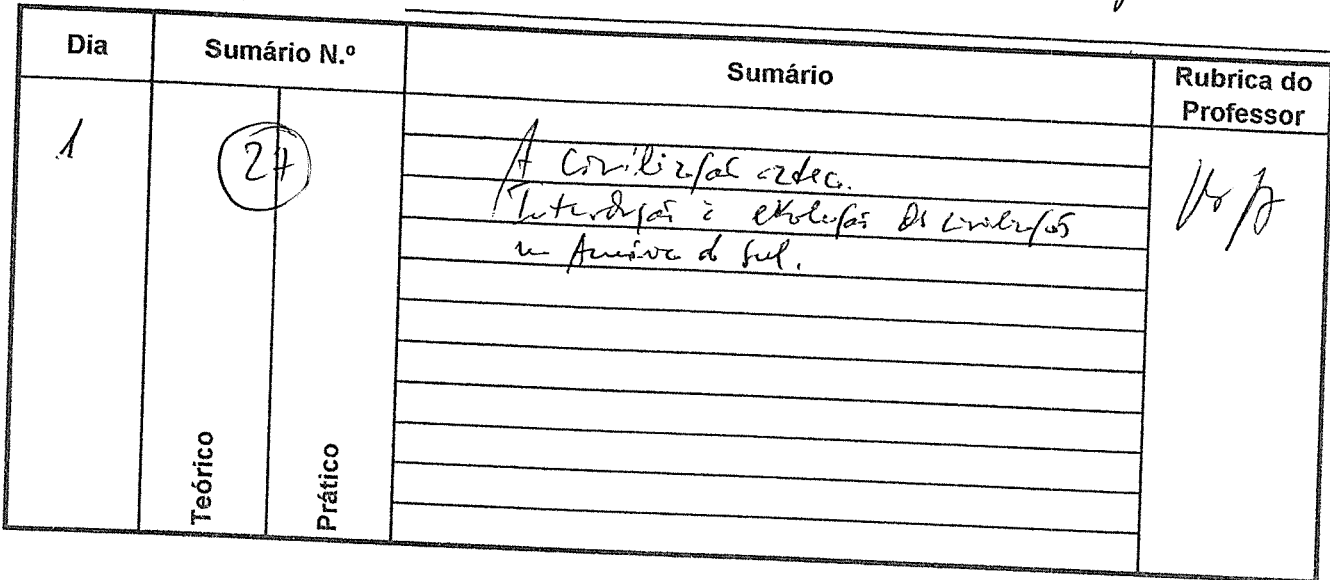 Dia
Sumário N.º
Sumário
Rubrica do
Professor
1
27
A civilização azteca.
Introdução à evolução das civilizações
na América do Sul.
Teórico
Prático